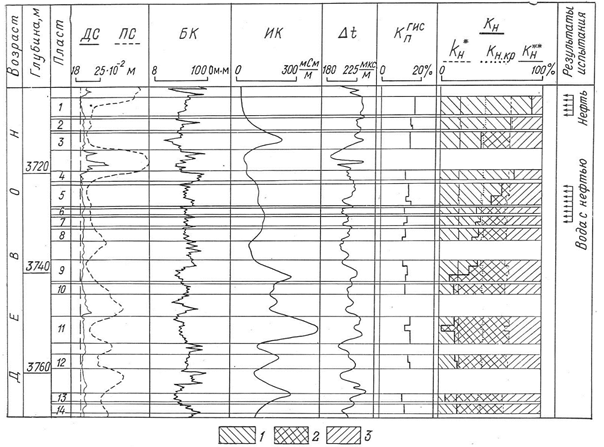 Возраст
Глубина, м
Пласт
ДС ПС
18 25·10⁻² м
БК
8 100 Ом·м
ИК
0 300 мСм/м
Δt
180 225 мкс/м
Кп гис
0 20%
Кн
kн* Кн.кр Кн**
0 100%
Результаты испытания
Д Е В О Н
3720
3740
3760
1
2
3
4
5
6
7
8
9
10
11
12
13
14
Нефть
Вода с нефтью
1 2 3